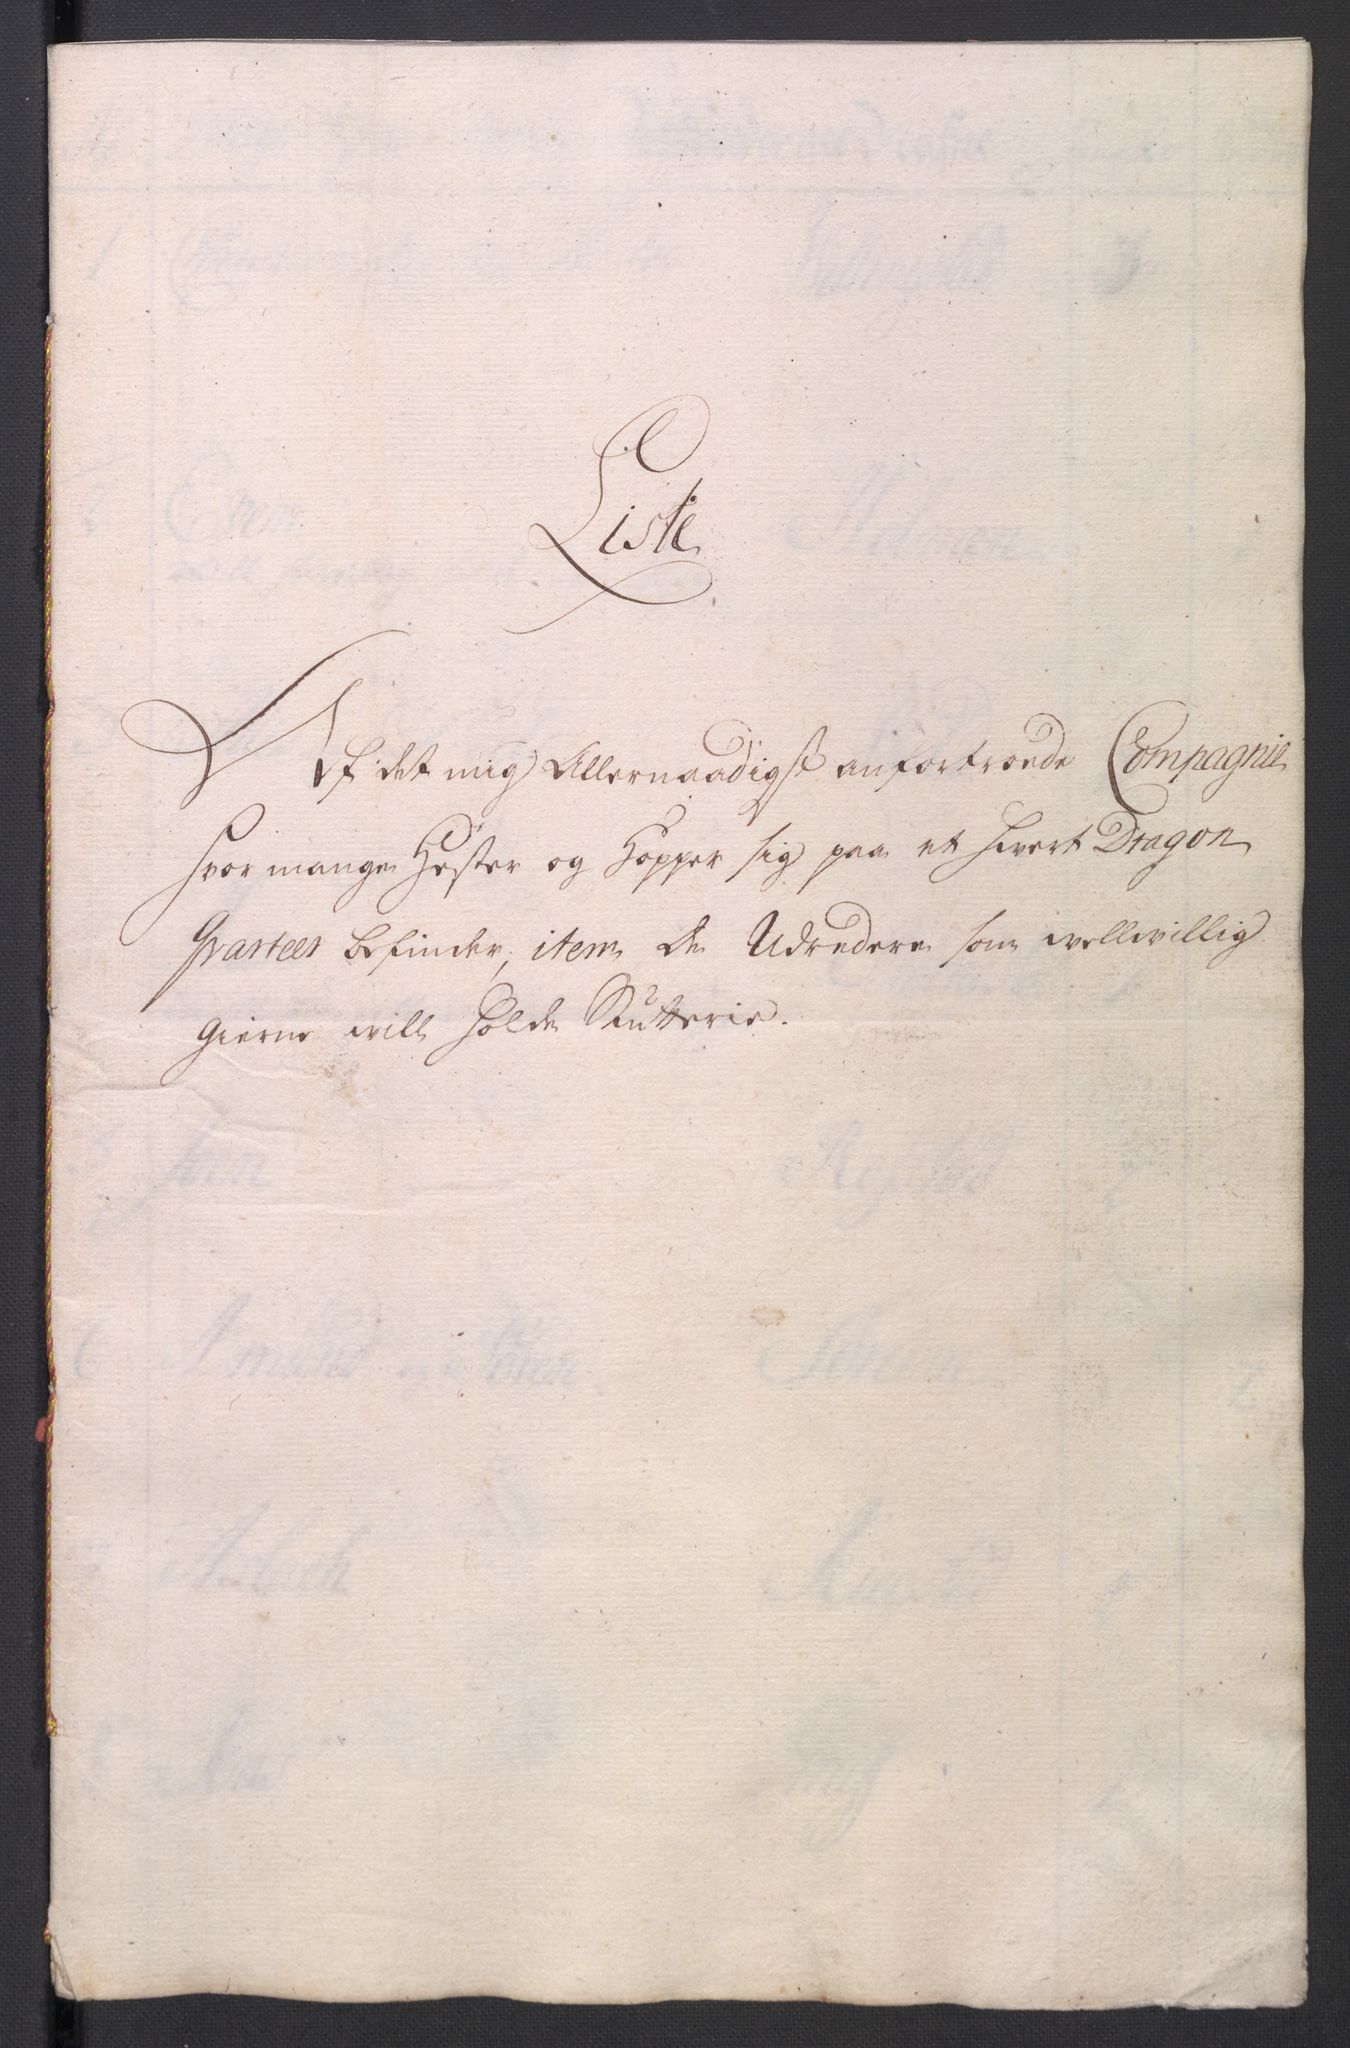 Liste
Af det mig Allernaadigst anfortroede Compagnie
hvor mange Hester og Hopper sig paa et hvert Dragon
Qvarteer befinder, item de Udredere som velvillig
gierne vill holde Stutterie.